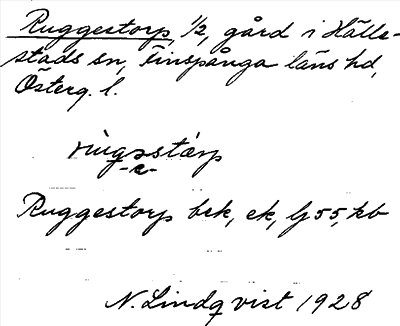 Ruggestorp, 1/2, gård i Hälle-
stads sn, Finspånga läns hd,
Österg. l.
-e-
Ruggestorp bek, ek, lj 55, kb
N. Lindqvist 1928